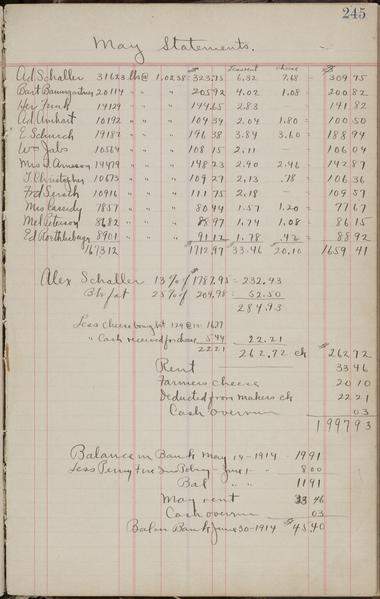 245
May Statements.
$ Tenant Cheese $
Ad Schaller 31623 lbs @ 1.0238 = 323.75 6.32 7.68 = 309 75
Bart Baumgartner 20114 " " " 205 92 4.02 1.08 200 82
Her Funk 14129 " " " 144.65 2.83 141 82
Ad Amhart 10192 " " " 104 34 2.04 1.80 = 100 50
E Schurch 19182 " " " 196 38 3.84 3.60 = 188 94
Wm Jabs 10564 " " " 108 15 2.11 — 106 04
Mrs A Arneson 14479 " " " 148 23 2.90 2.46 = 142 87
J. Christopher 10673 " " " 109 27 2.13 .78 106 36
Frd Gersch 10916 " " " 111 75 2.18 — 109 57
Mrs Cassidy 7857 " " " 80 44 1.57 1.20 = 77 67
Mel Peterson 8682 " " " 88 97 1.74 1.08 = 86 15
Ed Rorthlisberger 8901 " " " 91 12 1.78 .42 = 88 92
167312 $1712.97 33.46 20.10 1659 41
Alex Schaller 13% of $1787.95 = 232.43
25% of 209.98 = 52.50
284.93
Less Cheese bought 129 @ 13 16.77
" Cash received for cheese 5.44 22.21
22.21 262.72 ch $ 262 72
Rent 33 46
Farmers cheese 20 10
Deducted from makers ch 22 21
Cash overrun 03
1997 93
Balance in Bank May 19-1914 19 91
Less Perry Fire Ins Policy - June 1 - 8 00
Bal " " 11 91
May rent 33 46
Cash overrun 03
Bal in Bank June 30-1914 $45.40